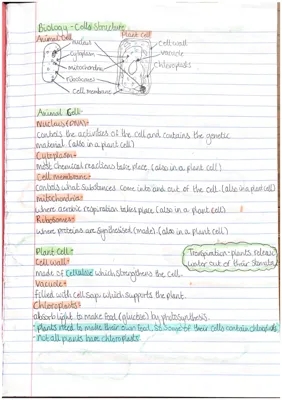 Biology - Cells structure
Animal Cell
Plant Cell
nucleus
cytoplasm
mitochondria
ribosomes
cell membrane
cell wall
vacuole
Chloroplasts
Animal Cell-
Nucleus (DNA)→
Controls the activities of the cell and contains the genetic
material. (also in a plant cell)
Cytoplasm→
most chemical reactions take place. (also in a plant cell)
Cell membrane→
Controls what substances come into and out of the cell. (also in a plant cell)
mitochondria→
where aerobic respiration takes place (also in a plant cell)
Ribosomes→
where proteins are synthesised (made). (also in a plant cell)
Plant Cell→
Cell wall→
made of cellulose which strengthens the cell.
Vacuole→
filled with cell sap which supports the plant.
Chloroplasts→
absorb light to make food (glucose) by photosynthesis.
plants need to make their own food, so some of their cells contain chloroplasts
Not all plants have chloroplasts
Transpiration - plants release
water out of their stomata